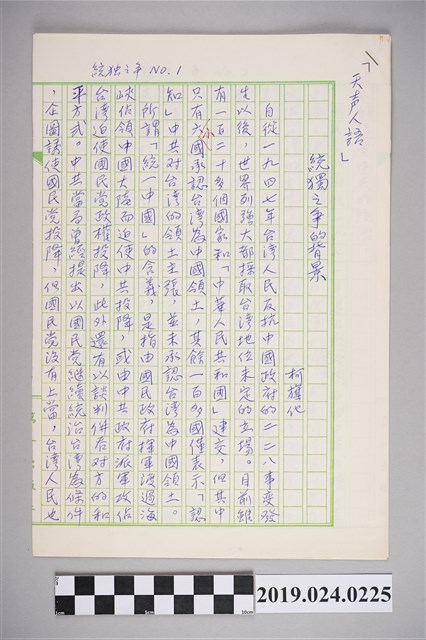 「天声人語」
統独之争 NO.1
統獨之争的背景
柯旗化
自從一九四七年台湾人民反抗中國政府的二二八事变發
生以後，世界列強大都採取台湾地位未定的立場。目前雖
有一百二十多個國家和「中華人民共和國」建交，但其中
只有六小國承認台湾為中國領土，其餘一百多國僅表示「認
知」中共对台湾的領土主張，並未承認台湾為中國領土。
所謂「統一中國」的含義，是指由國民政府揮軍渡過海
峡佔領中國大陸而迫使中共投降，或由中共政府派軍攻佔
台湾迫使國民党政權投降，此外還有以談判併吞对方的和
平方式。中共當局曾經提出以國民党繼續統治台湾為條件
，企圖誘使國民党投降，但國民党沒有上當，台湾人民也
0
1cm
5cm
10cm
2019.024.0225